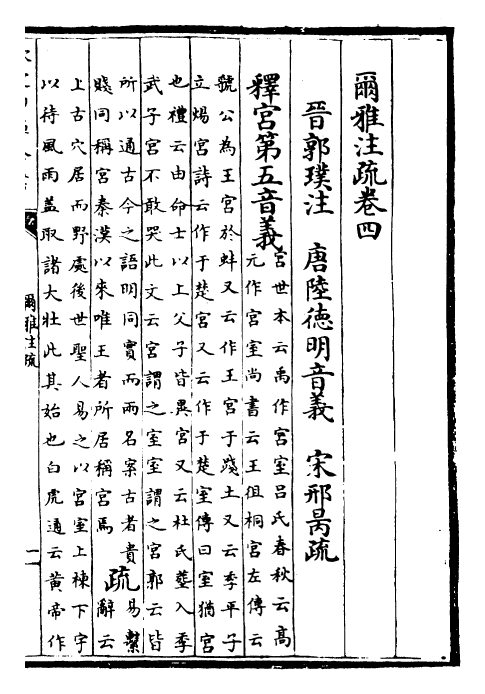 爾雅注疏卷四
晉郭璞注 唐陸德明音義 宋邢昺疏
釋宮第五音義
宮世本云禹作宮室呂氏春秋云高
元作宮室尚書云王徂桐宮左傳云
虢公為王宮於蚌又云作王宮于踐土又云季平子
立煬宮詩云作于楚宮又云作于楚室傳曰室猶宮
也禮云由命士以上父子皆異宮又云杜氏塟入季
武子宮不敢哭此文云宮謂之室室謂之宮郭云皆
所以通古今之語明同實而兩名案古者貴
賤同稱宮秦漢以來唯王者所居稱宮焉
疏
易繫
辭云
上古穴居而野處後世聖人易之以宮室上棟下宇
以待風雨蓋取諸大壯此其始也白虎通云黃帝作
爾雅注疏
一